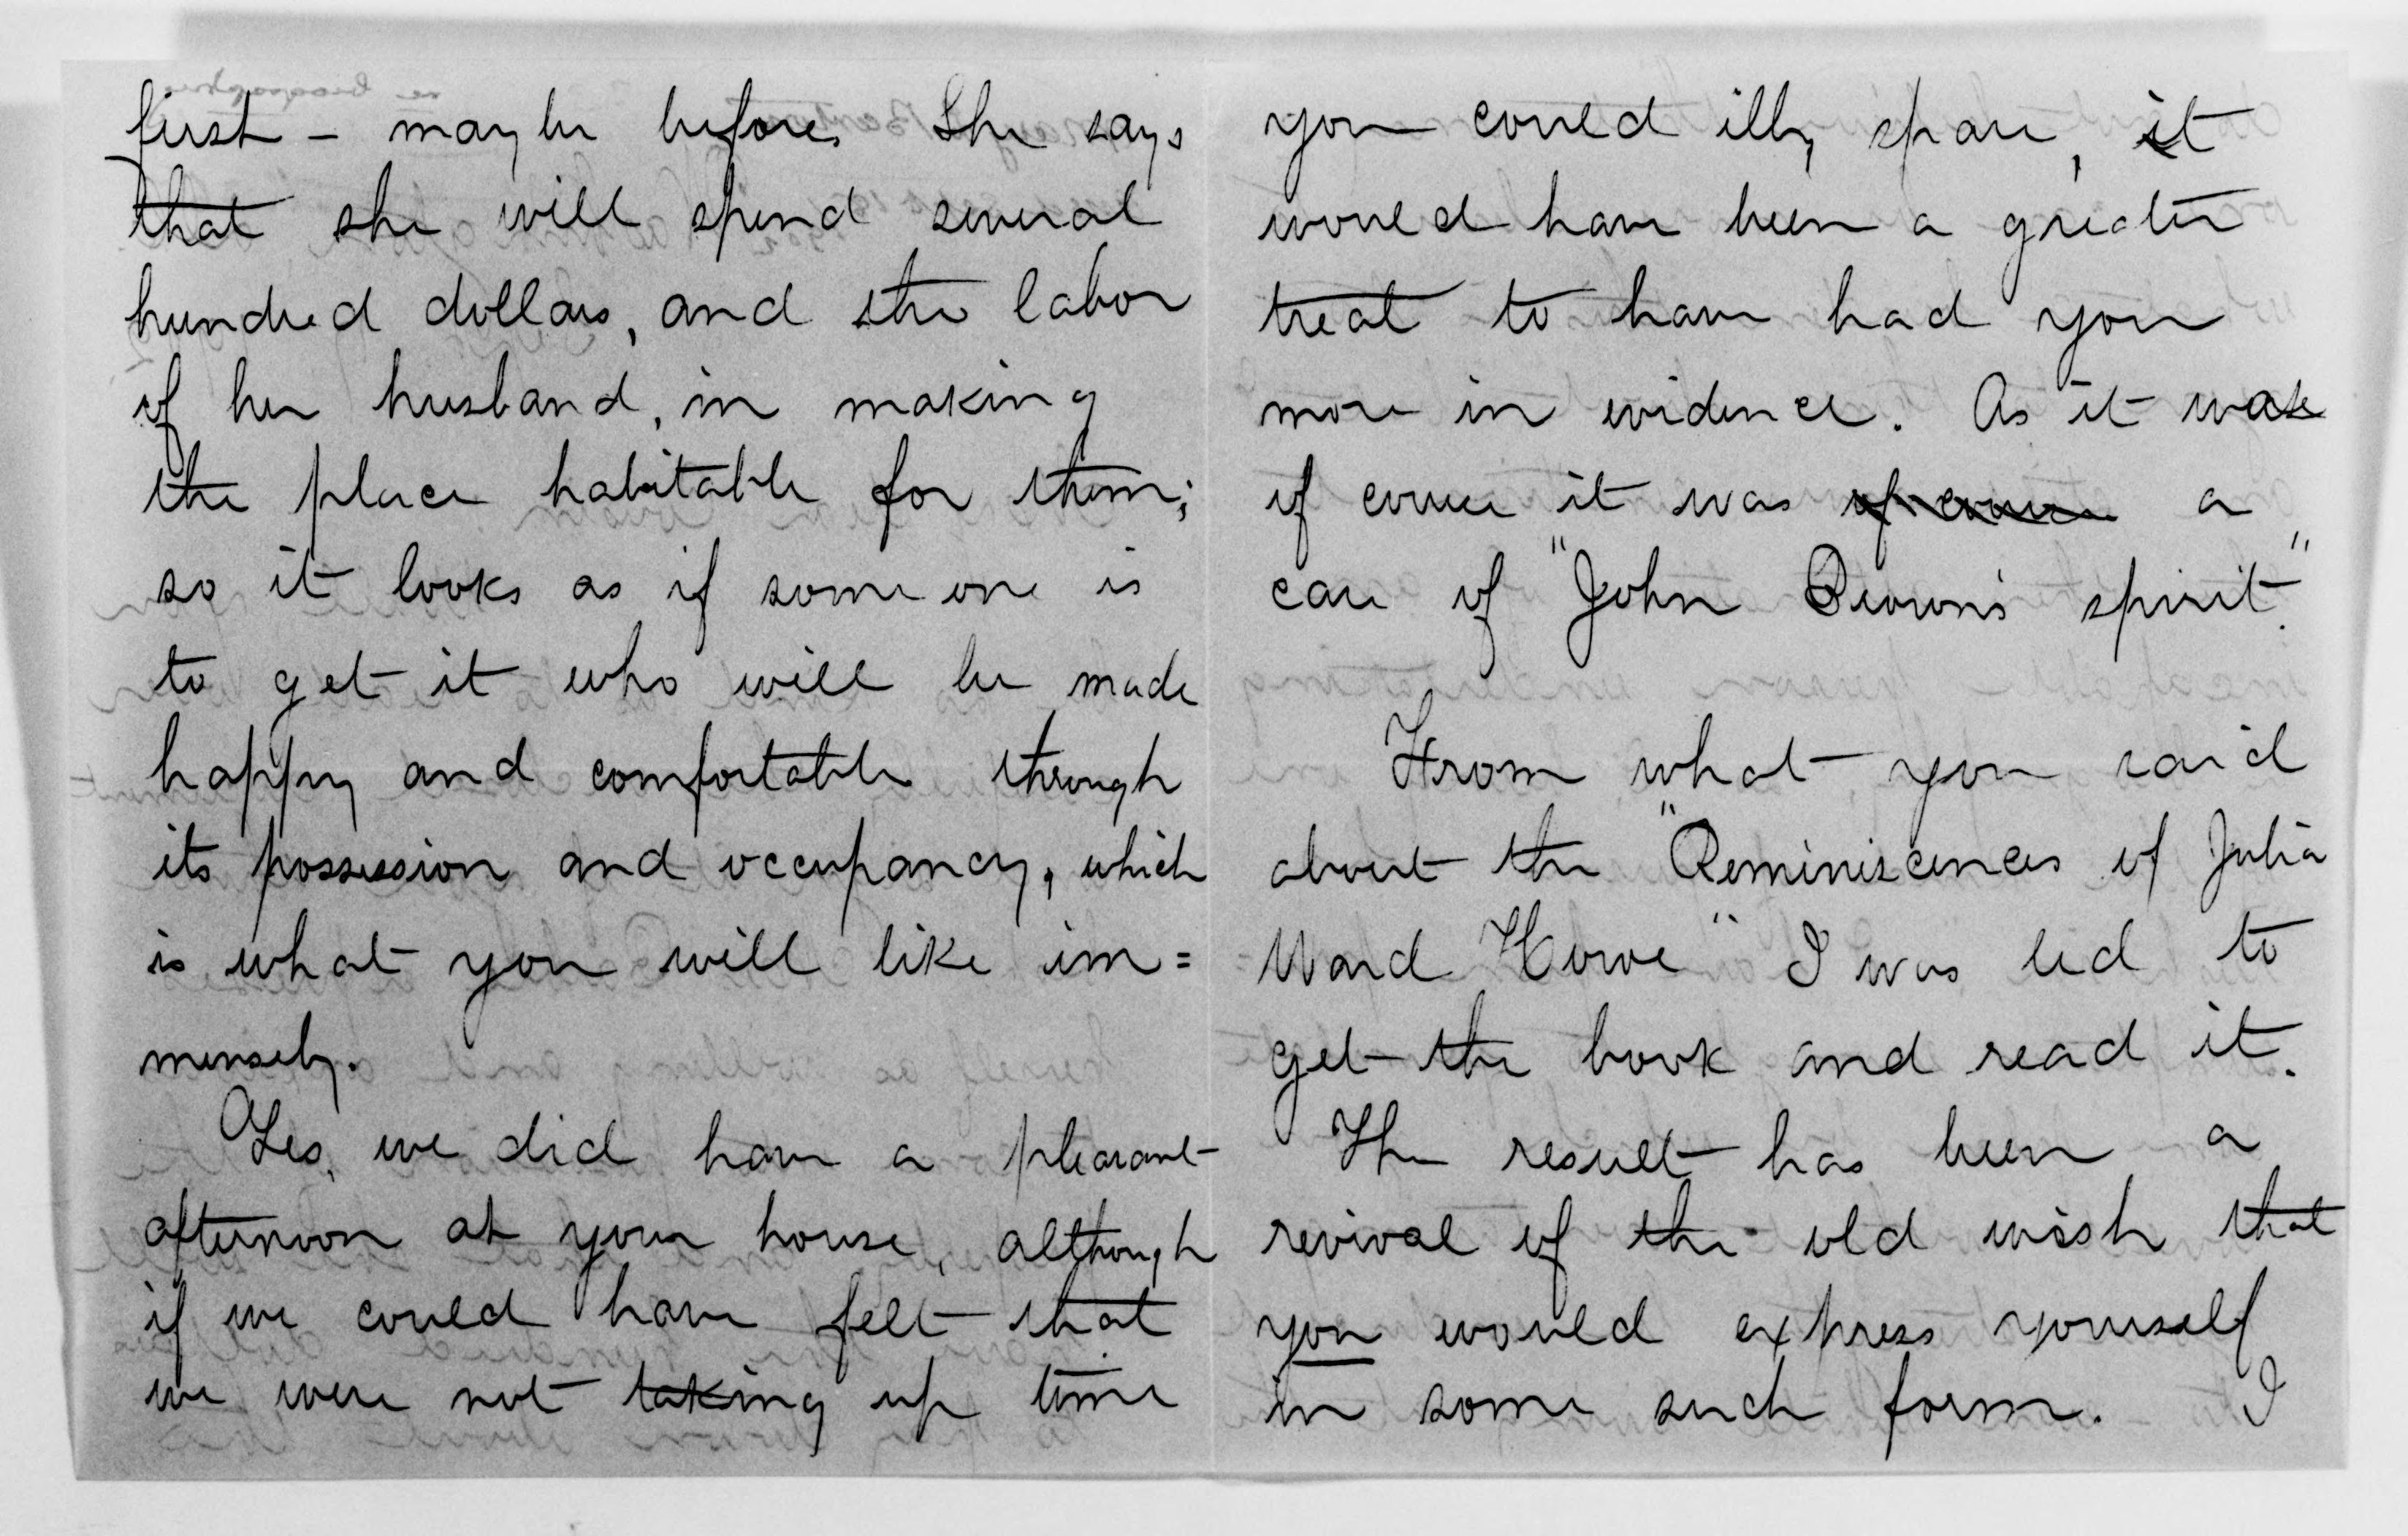 first - maybe before. She says
that she will spend several
hundred dollars, and the labor
of her husband, in making
the place habitable for them;
so it looks as if some one is
to get it who will be made
happy and comfortable through
its possession and occupancy, which
is what you will like im=
mensely.
Yes, we did have a pleasant
afternoon at your house, although
if we could have felt that
we were not taking up time
you could illy spare, it
would have been a greater
treat to have had you
more in evidence. As it was
of course it was of course a
case of "John Brown's spirit."
From what you said
about the "Reminiscences of Julia
Ward Howe" I was led to
get the book and read it.
The result has been a
revival of the old wish that
you would express yourself
in some such form. I